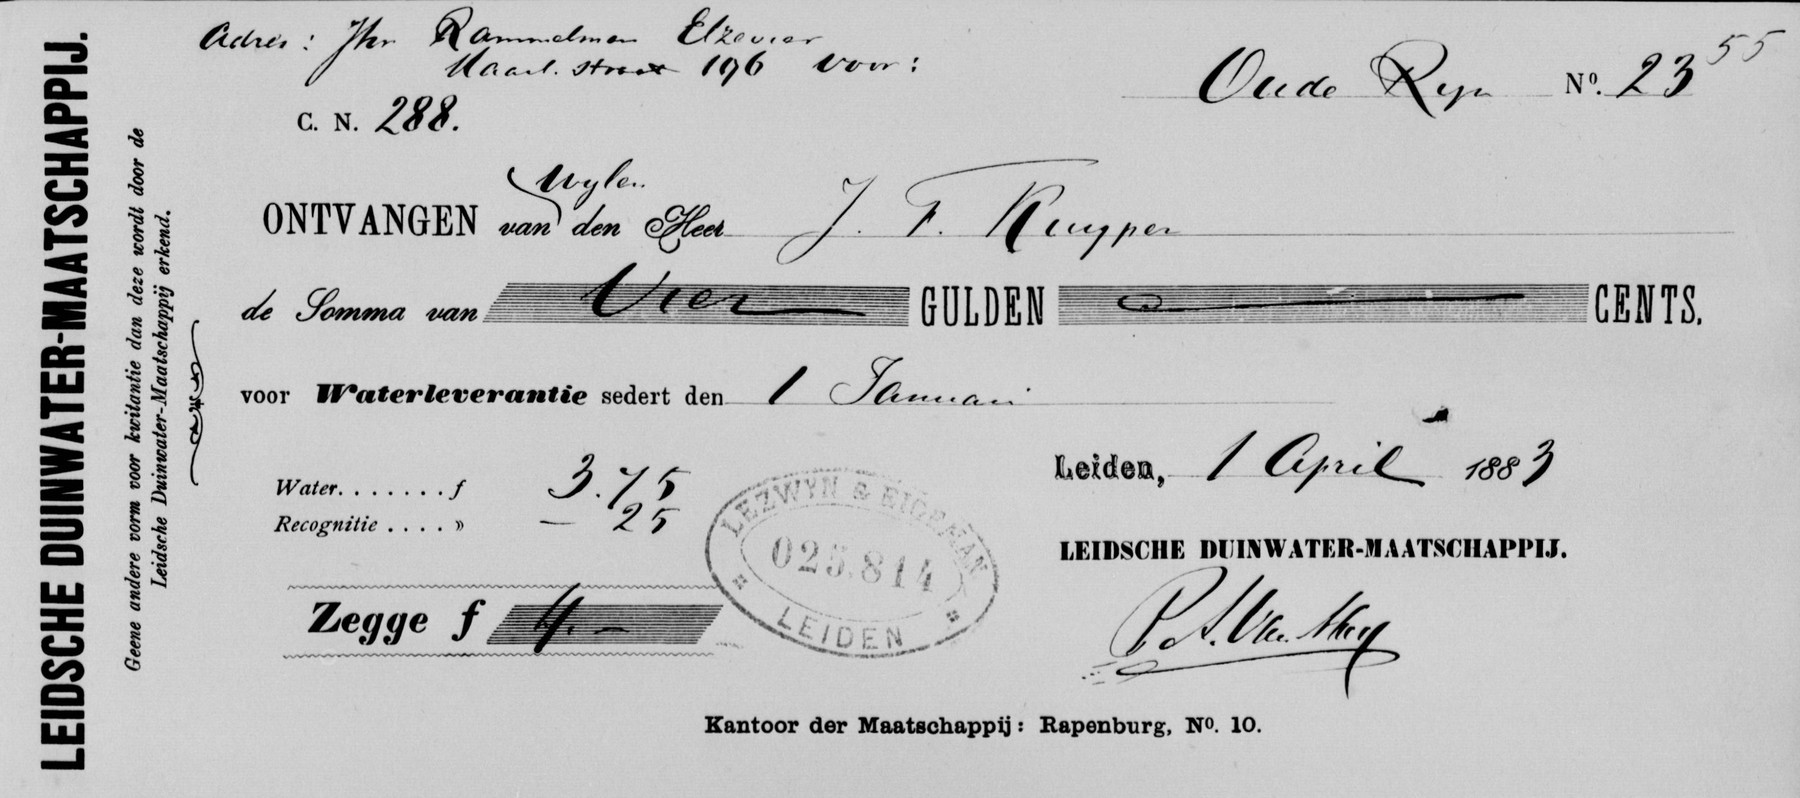 LEIDSCHE DUINWATER-MAATSCHAPPIJ.
Geene andere vorm voor kwitantie dan deze wordt door de
Leidsche Duinwater-Maatschappij erkend.
Adres: Jhr Rammelman Elzevier
Haarl. straat 196 voor:
Oude Ryn No. 23 55
C. N. 288.
Wylen
ONTVANGEN van den Heer J. F. Kuyper
de Somma van Vier GULDEN CENTS.
voor Waterleverantie sedert den 1 Januari
Leiden, 1 April 1883
Water. . . . . . . . f 3.75
Recognitie . . . . » — 25
LEZWYN & EIGEMAN
025.814
LEIDEN
LEIDSCHE DUINWATER-MAATSCHAPPIJ.
Zegge f 4.—
Kantoor der Maatschappij: Rapenburg, No. 10.